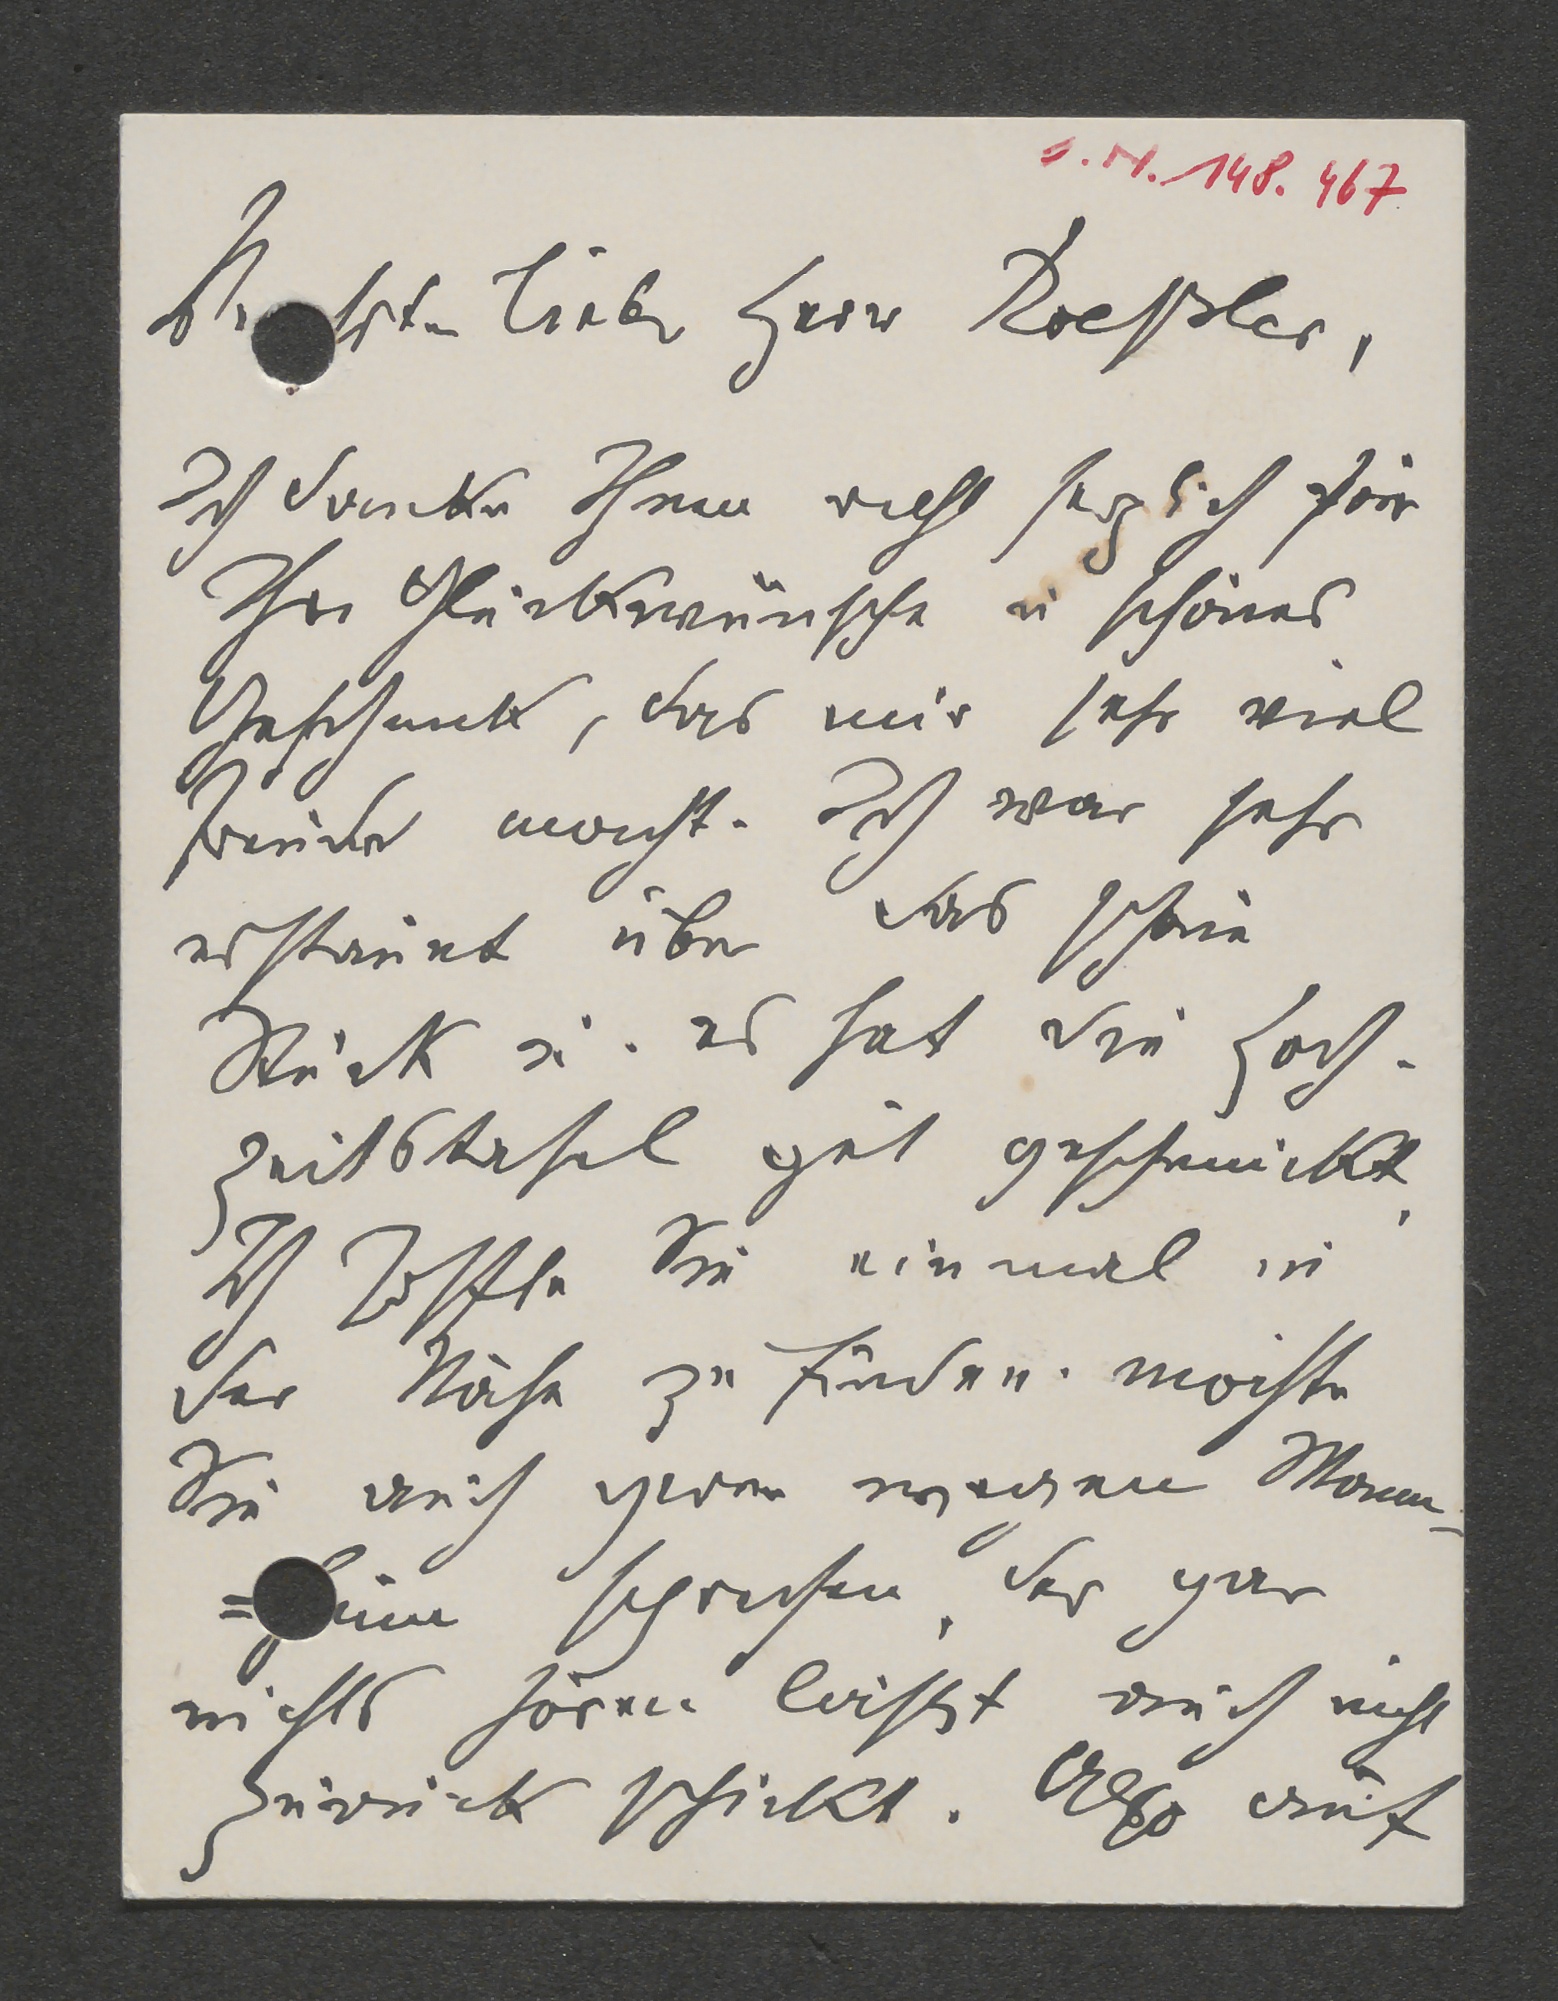 I.N. 148.467
lieber Herr Roessler,
Ich danke Ihnen recht herzlich für
Ihre Glückwünsche u schönes
Geschenk, das mir sehr viel
Freude macht. Ich war sehr
erstaunt über das schöne
Stück u. es hat die Hoch-
zeitstafel gut geschmückt.
Ich hoffte Sie einmal in
der Nähe zu finden. möchte
Sie auch gern wegen Mann-
=heim sprechen, der gar
nichts hören lässt auch nicht
zurück schickt. Also auf